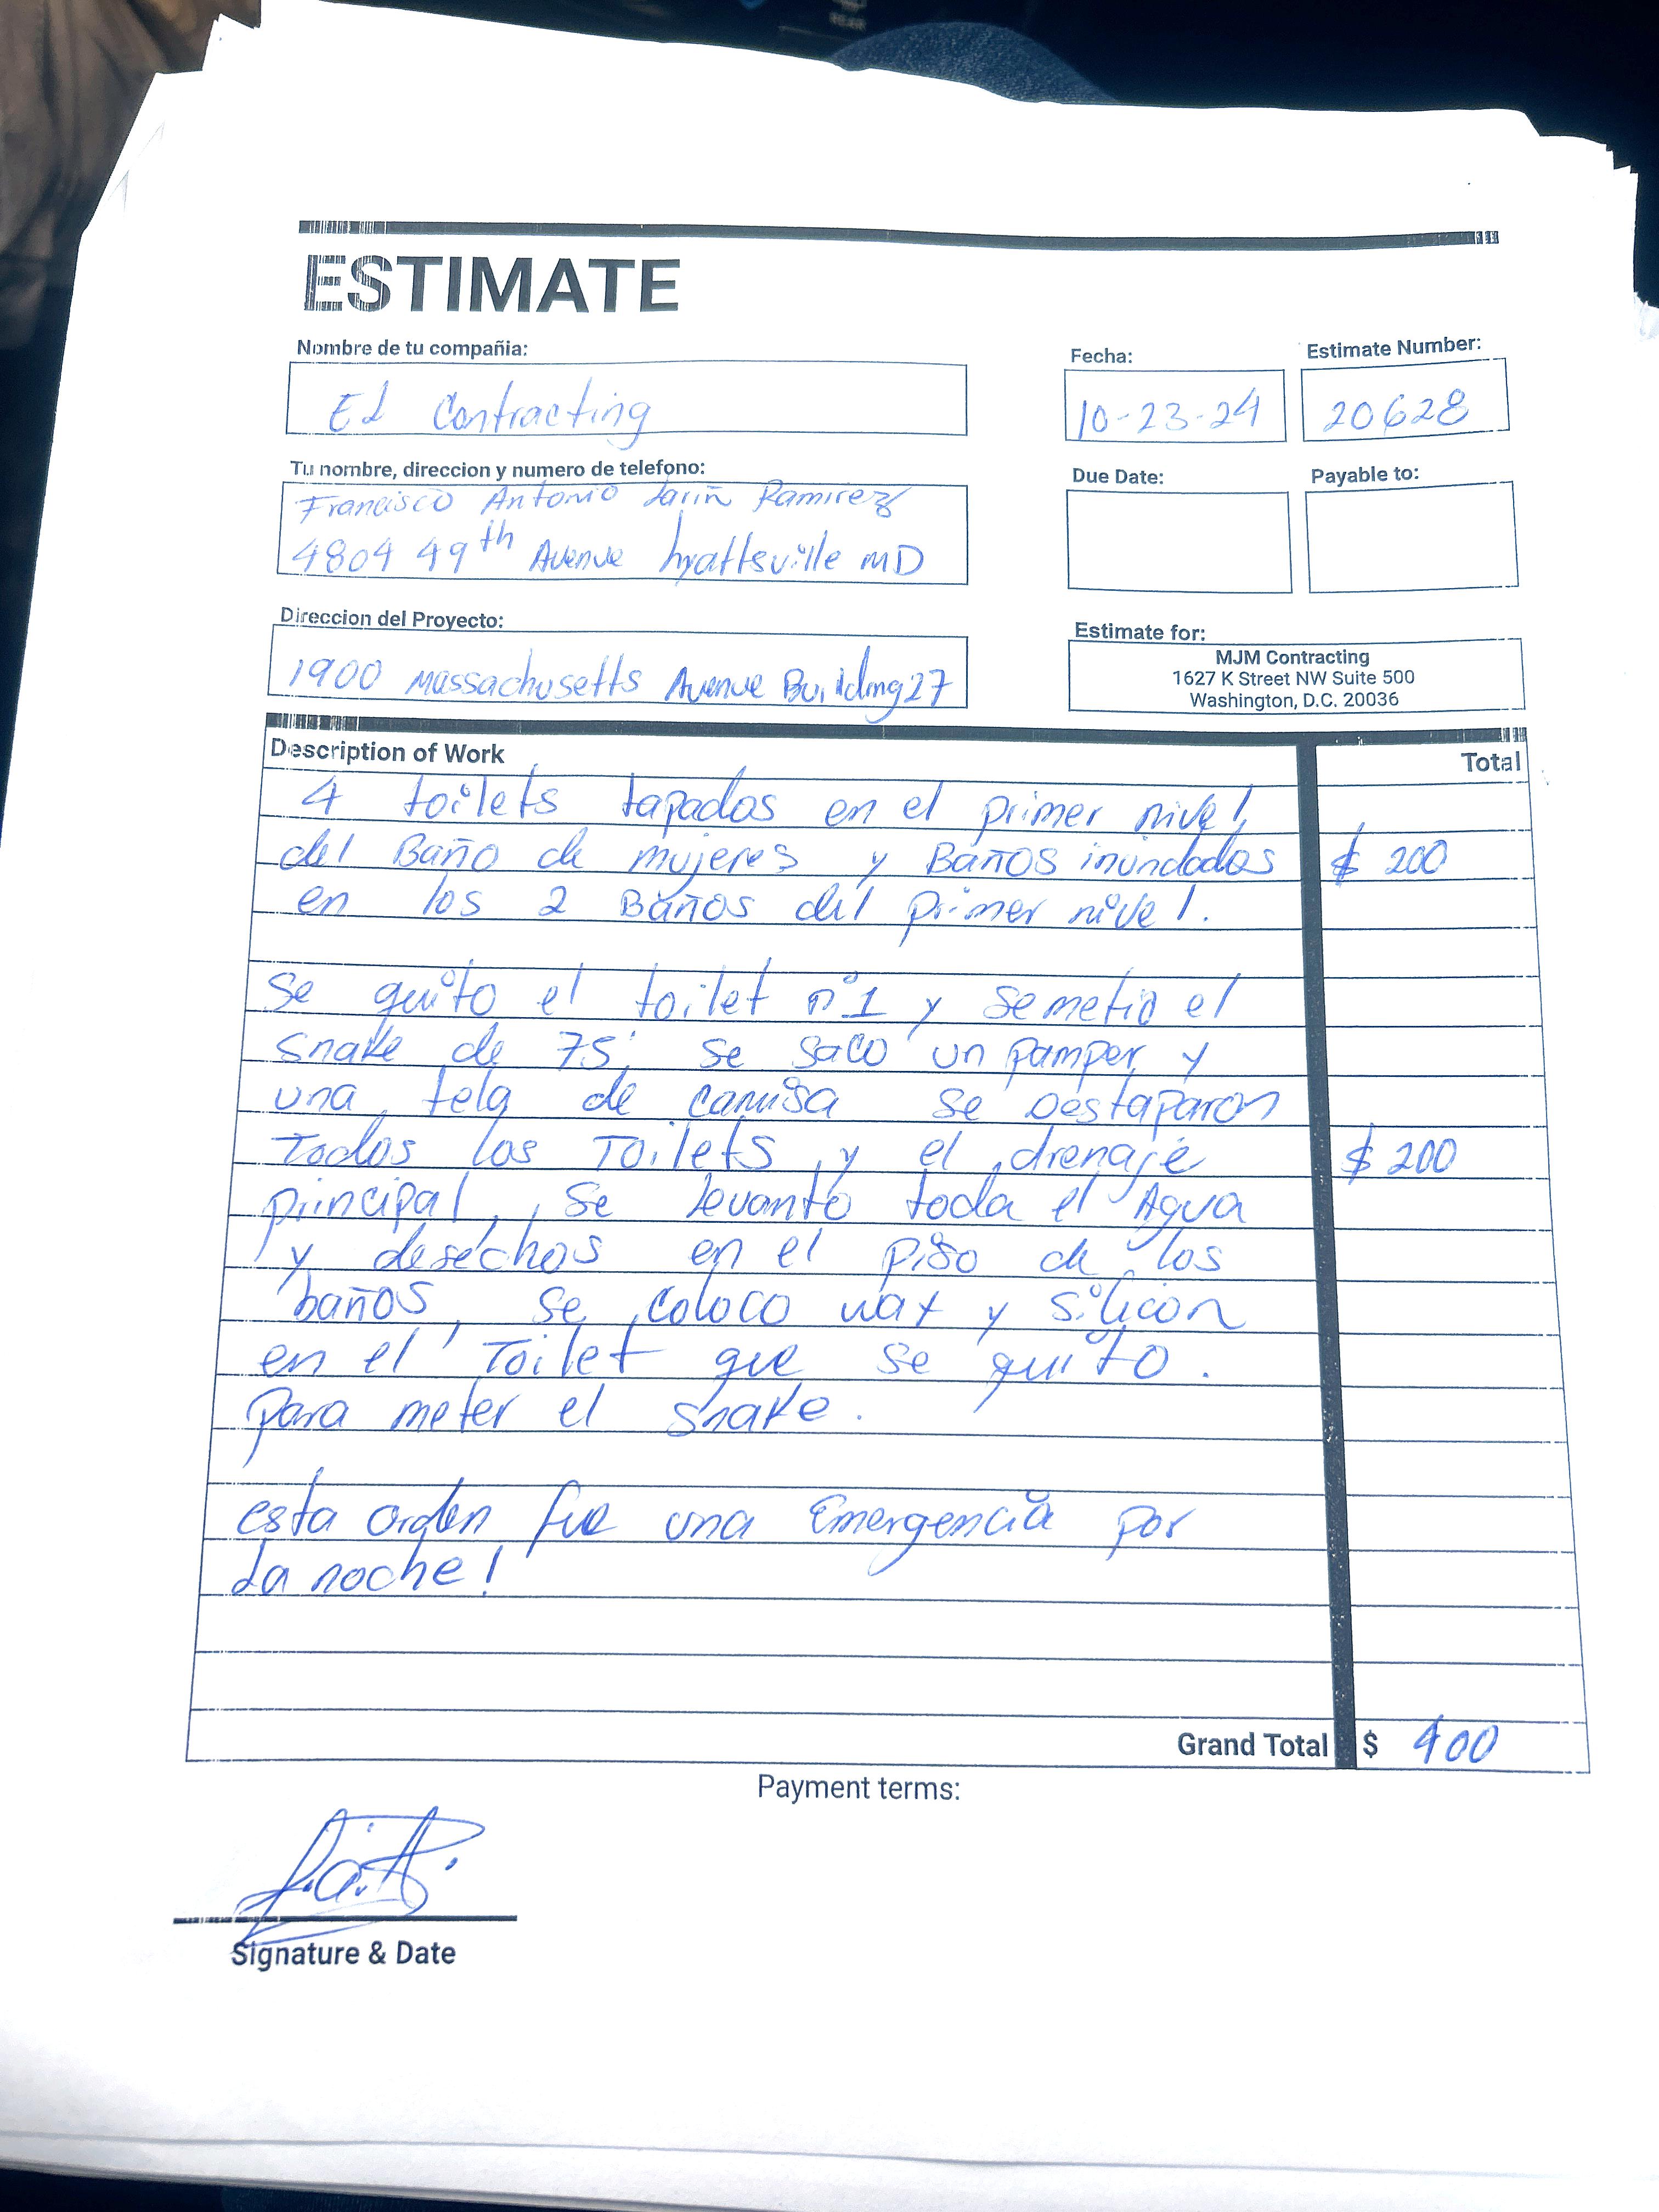 ESTIMATE
Nombre de tu compañia:
EL Contracting
Fecha:
10-23-24
Estimate Number:
20628
Tu nombre, direccion y numero de telefono:
Francisco Antonio Larin Ramirez
4804 49th Avenue hyattsville MD
Due Date:
Payable to:
Direccion del Proyecto:
1900 Massachusetts Avenue Building 27
Estimate for:
MJM Contracting
1627 K Street NW Suite 500
Washington, D.C. 20036
Description of Work
Total
4 toilets tapados en el primer nivel,
del Baño de mujeres y Baños inundados $ 200
en los 2 Baños del primer nivel.
Se quito el toilet n°1 y se metio el
snake de 75' se saco un pamper y
una tela de camisa se Destaparon
Todos los Toilets y el drenaje $ 200
principal, Se levanto toda el Agua
y desechos en el piso de los
baños, se coloco wax y silicon
en el Toilet que se quito.
para meter el snake.
esta orden fue una Emergencia por
La noche!
Grand Total $ 400
Payment terms:
Signature & Date